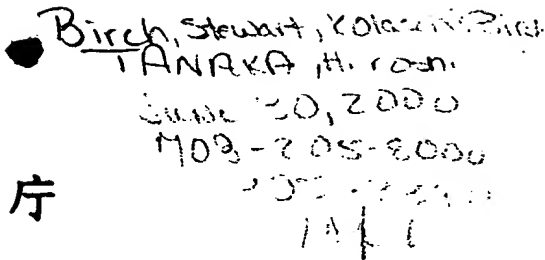 Birch, Stewart, Kolasch, Birch
TANAKA, Hiroshi
June 30, 2000
703-205-8000
庁
1 of 1